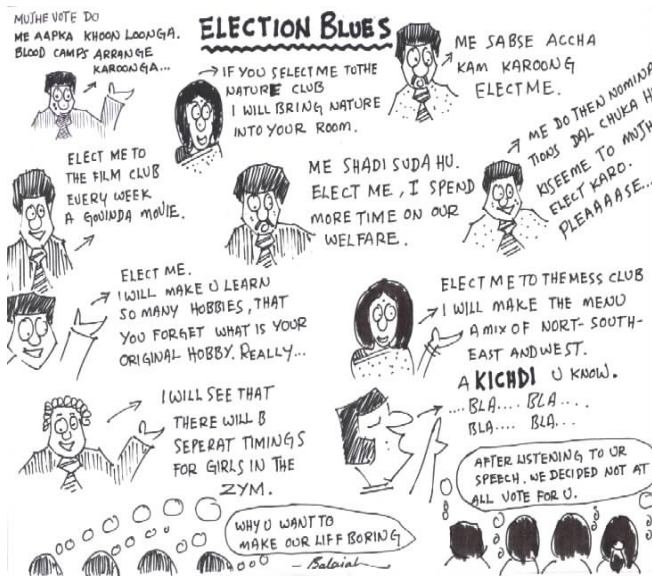 ELECTION BLUES
MUJHE VOTE DO
ME AAPKA KHOON LOONGA.
BLOOD CAMPS ARRANGE
KAROONGA...
IF YOU SELECT ME TO THE
NATURE CLUB
I WILL BRING NATURE
INTO YOUR ROOM.
ME SABSE ACCHA
KAM KAROONG
ELECT ME.
ELECT ME TO
THE FILM CLUB
EVERY WEEK
A GOVINDA MOVIE.
ME SHADI SUDA HU.
ELECT ME, I SPEND
MORE TIME ON OUR
WELFARE.
ME DO THEN NOMINA
TIONS DAL CHUKA H
KISEEME TO MUJH
ELECT KARO.
PLEAAAASE...
ELECT ME.
I WILL MAKE U LEARN
SO MANY HOBBIES, THAT
YOU FORGET WHAT IS YOUR
ORIGINAL HOBBY. REALLY...
ELECT ME TO THE MESS CLUB
I WILL MAKE THE MENU
A MIX OF NORT- SOUTH-
EAST AND WEST.
A KICHDI U KNOW.
I WILL SEE THAT
THERE WILL B
SEPERAT TIMINGS
FOR GIRLS IN THE
ZYM.
.... BLA.... BLA....
BLA.... BLA...
WHY U WANT TO
MAKE OUR LIFF BORING
AFTER LISTENING TO UR
SPEECH. WE DECIDED NOT AT
ALL VOTE FOR U.
Balaiah